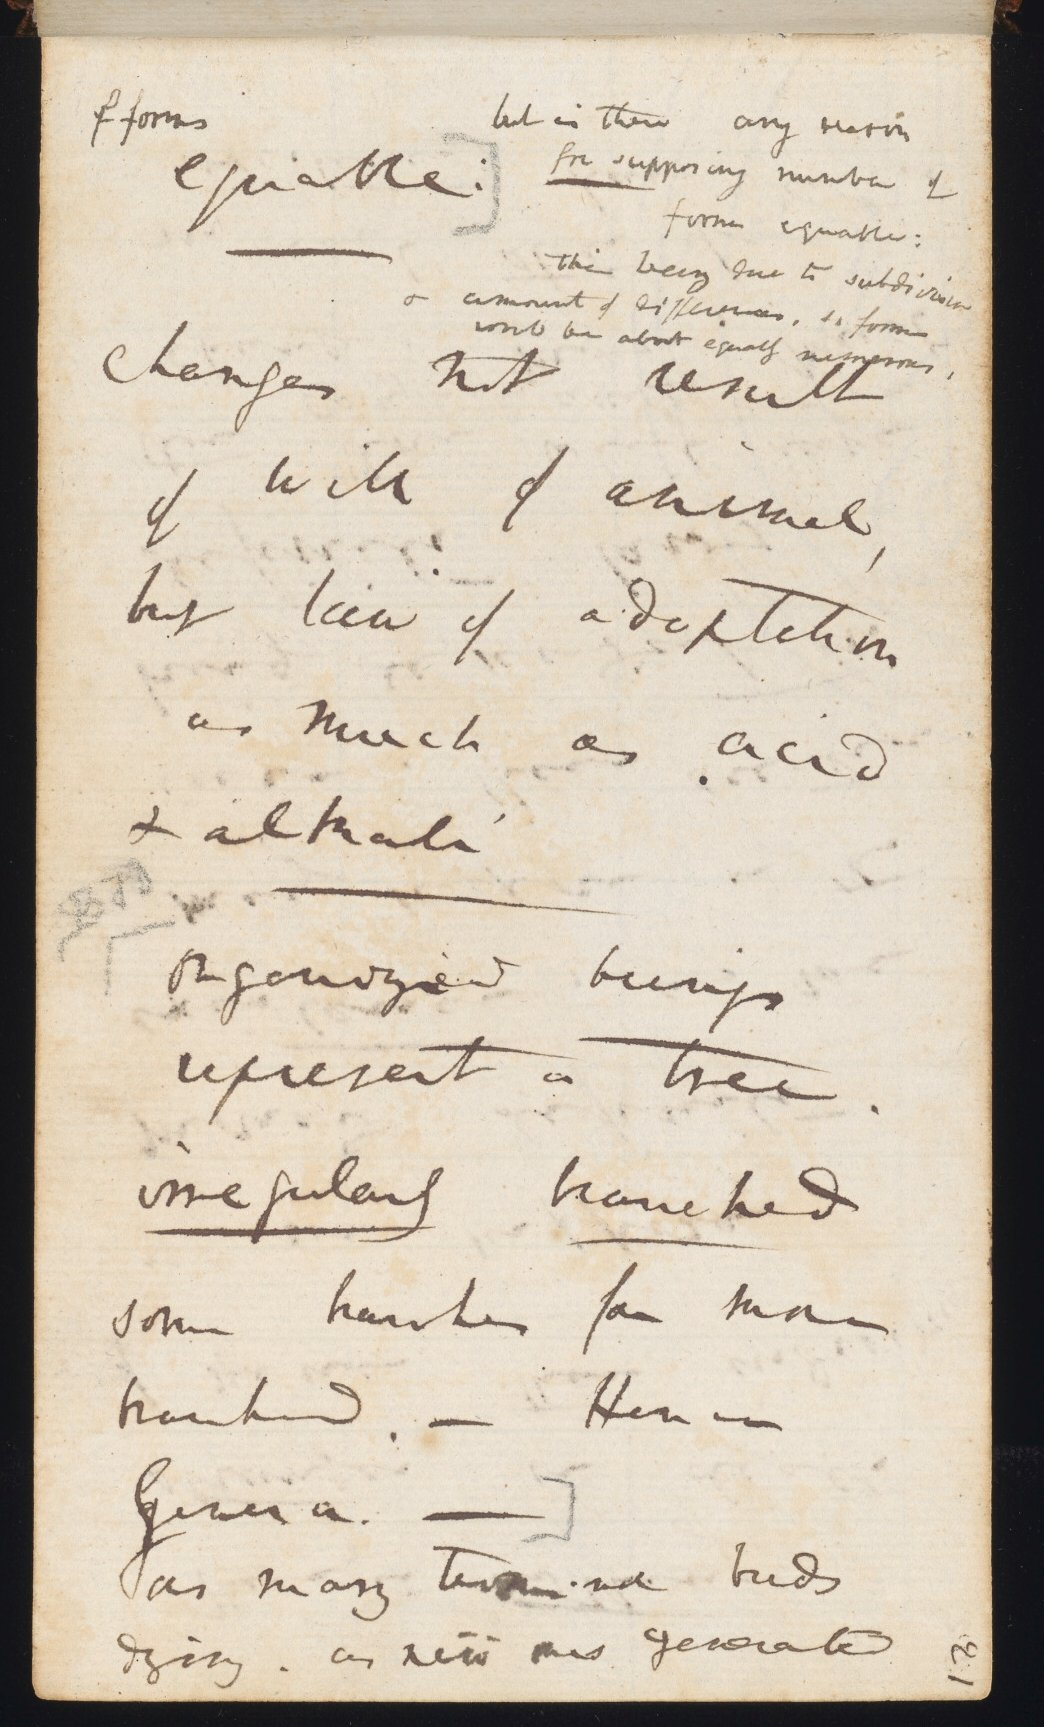 of forms
equable.]
but is there any reason
for supposing number of
forms equable:
this being due to subdivisions
& amount of differences, so forms
would be about equally numerous.
changes not result
of will of animal,
but law of adaptation
as much as acid
& alkali
organized beings
represent a tree.
irregularly branched
some branches far more
branched. — Hence
Genera. —]
as many terminal buds
dying. as new ones generated
21